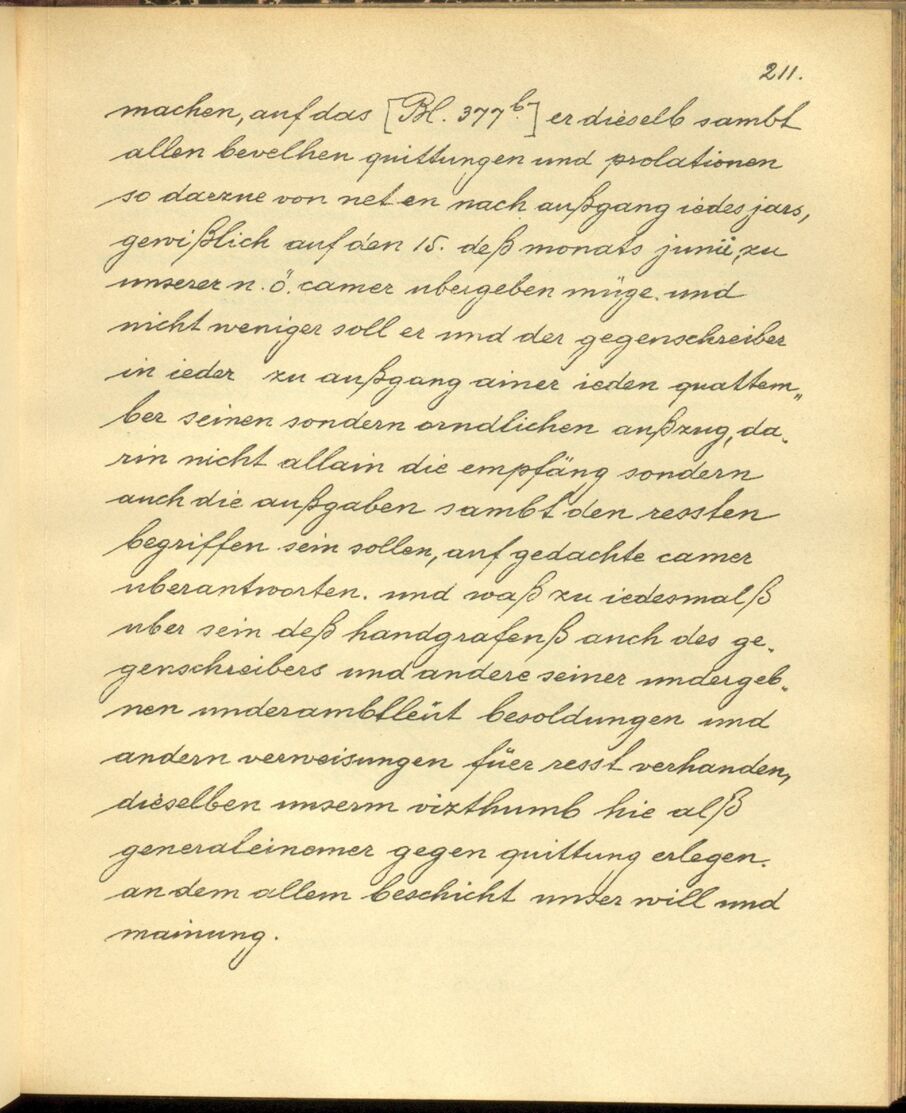 211.
machen, auf das [Bl. 377b.] er dieselb sambt
allen bevelhen quittungen und prolationen
so darzue von neten nach außgang iedes jars,
gewißlich auf den 15. deß monats junii, zu
unserer n. ö. camer ubergeben müge. und
nicht weniger soll er und der gegenschreiber
in ieder zu außgang ainer ieden quattem„
ber seinen sondern orndlichen außzug, da„
rin nicht allain die empfäng sondern
auch die außgaben sambt den ressten
begriffen sein sollen, auf gedachte camer
uberantworten. und waß zu iedesmalß
uber sein deß handgrafenß auch des ge„
genschreibers und andere seiner undergeb„
nen underambtleüt besoldungen und
andern verweisungen füer resst verhanden,
dieselben unserm vizthumb hie alß
generaleinemer gegen quittung erlegen.
an dem allem beschicht unser will und
mainung.